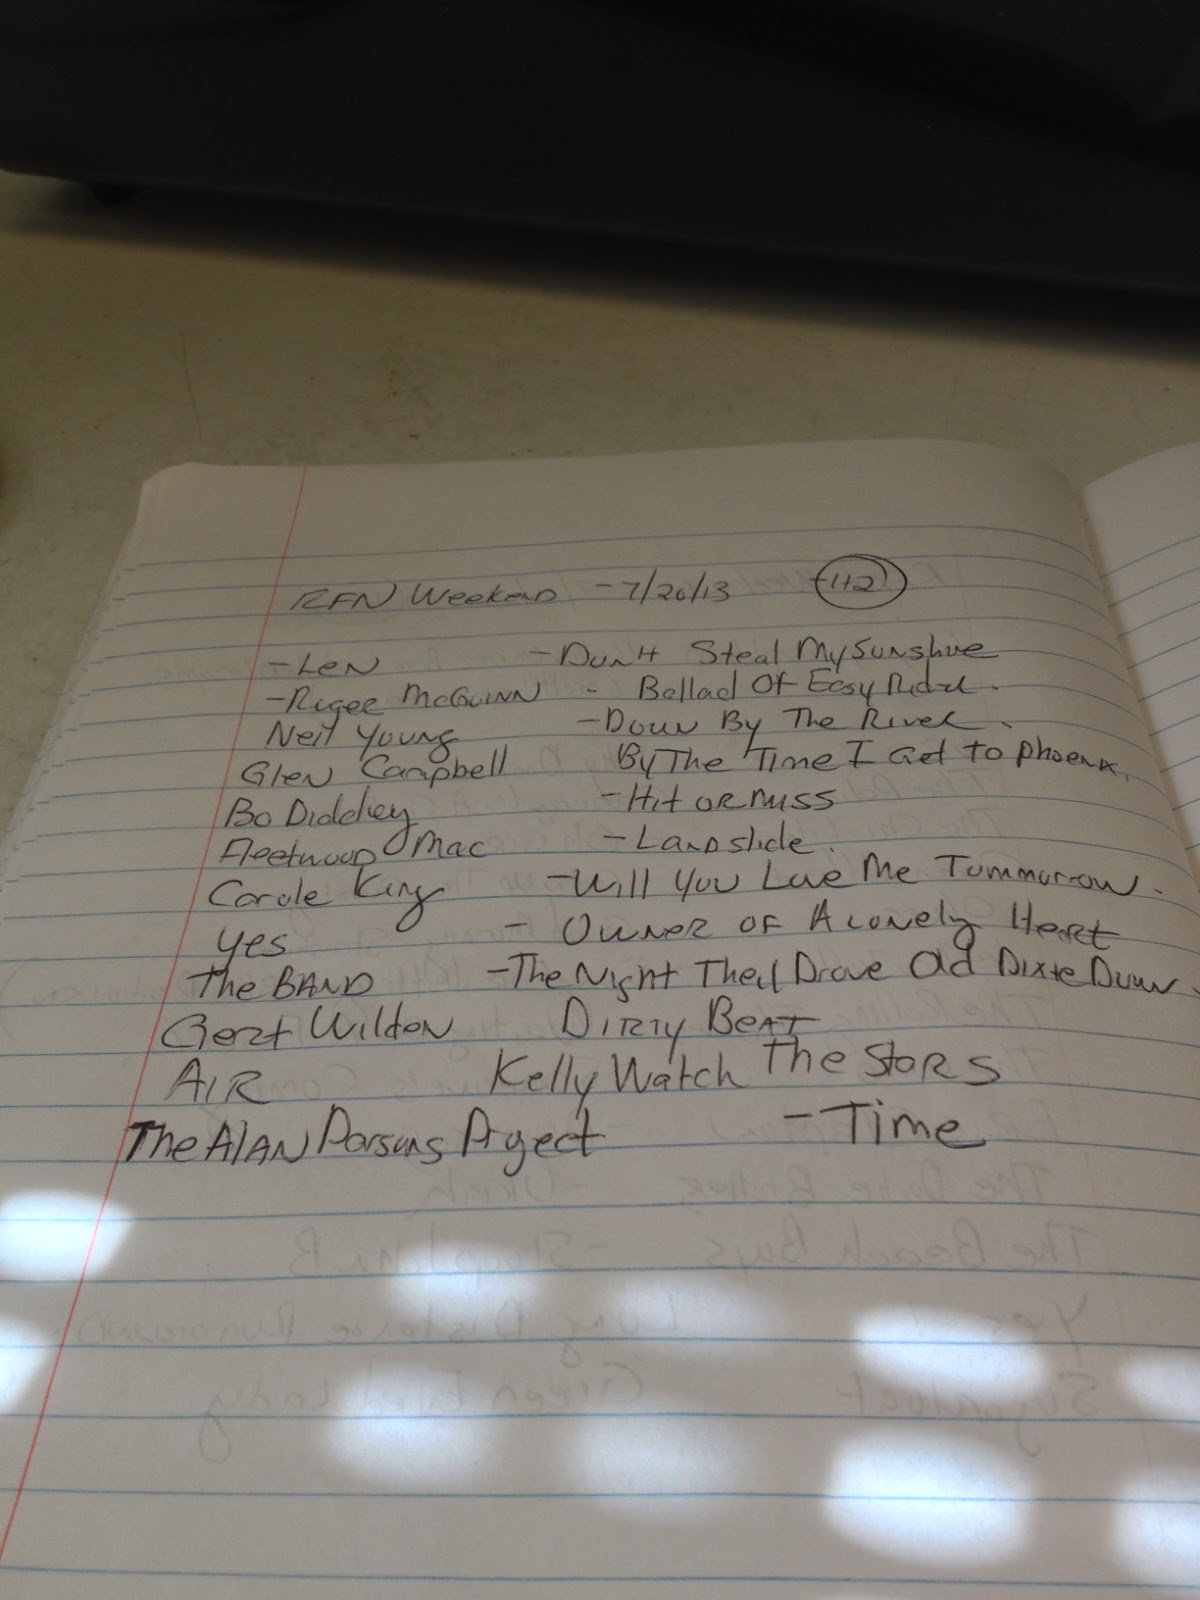 RFN Weekend - 7/20/13 112
- Len - Dun't Steal My Sunshine
- Roger McGuinn - Ballad Of Easy Rider.
Neil Young - Down By The River.
Glen Campbell By The Time I Get to Phoenix.
Bo Diddley - Hit or Miss
Fleetwood Mac - Landslide.
Carole King - Will You Love Me Tummurrow.
Yes - Owner of A Lonely Heart
The BAND - The Night They Drove Old Dixie Down.
Gert Wilden Dirty Beat
AIR Kelly Watch The Stars
The Alan Parsons Project - Time
The Beach Boys
Yes Long Distance Runaround
Sugarloaf Green Eyed Lady